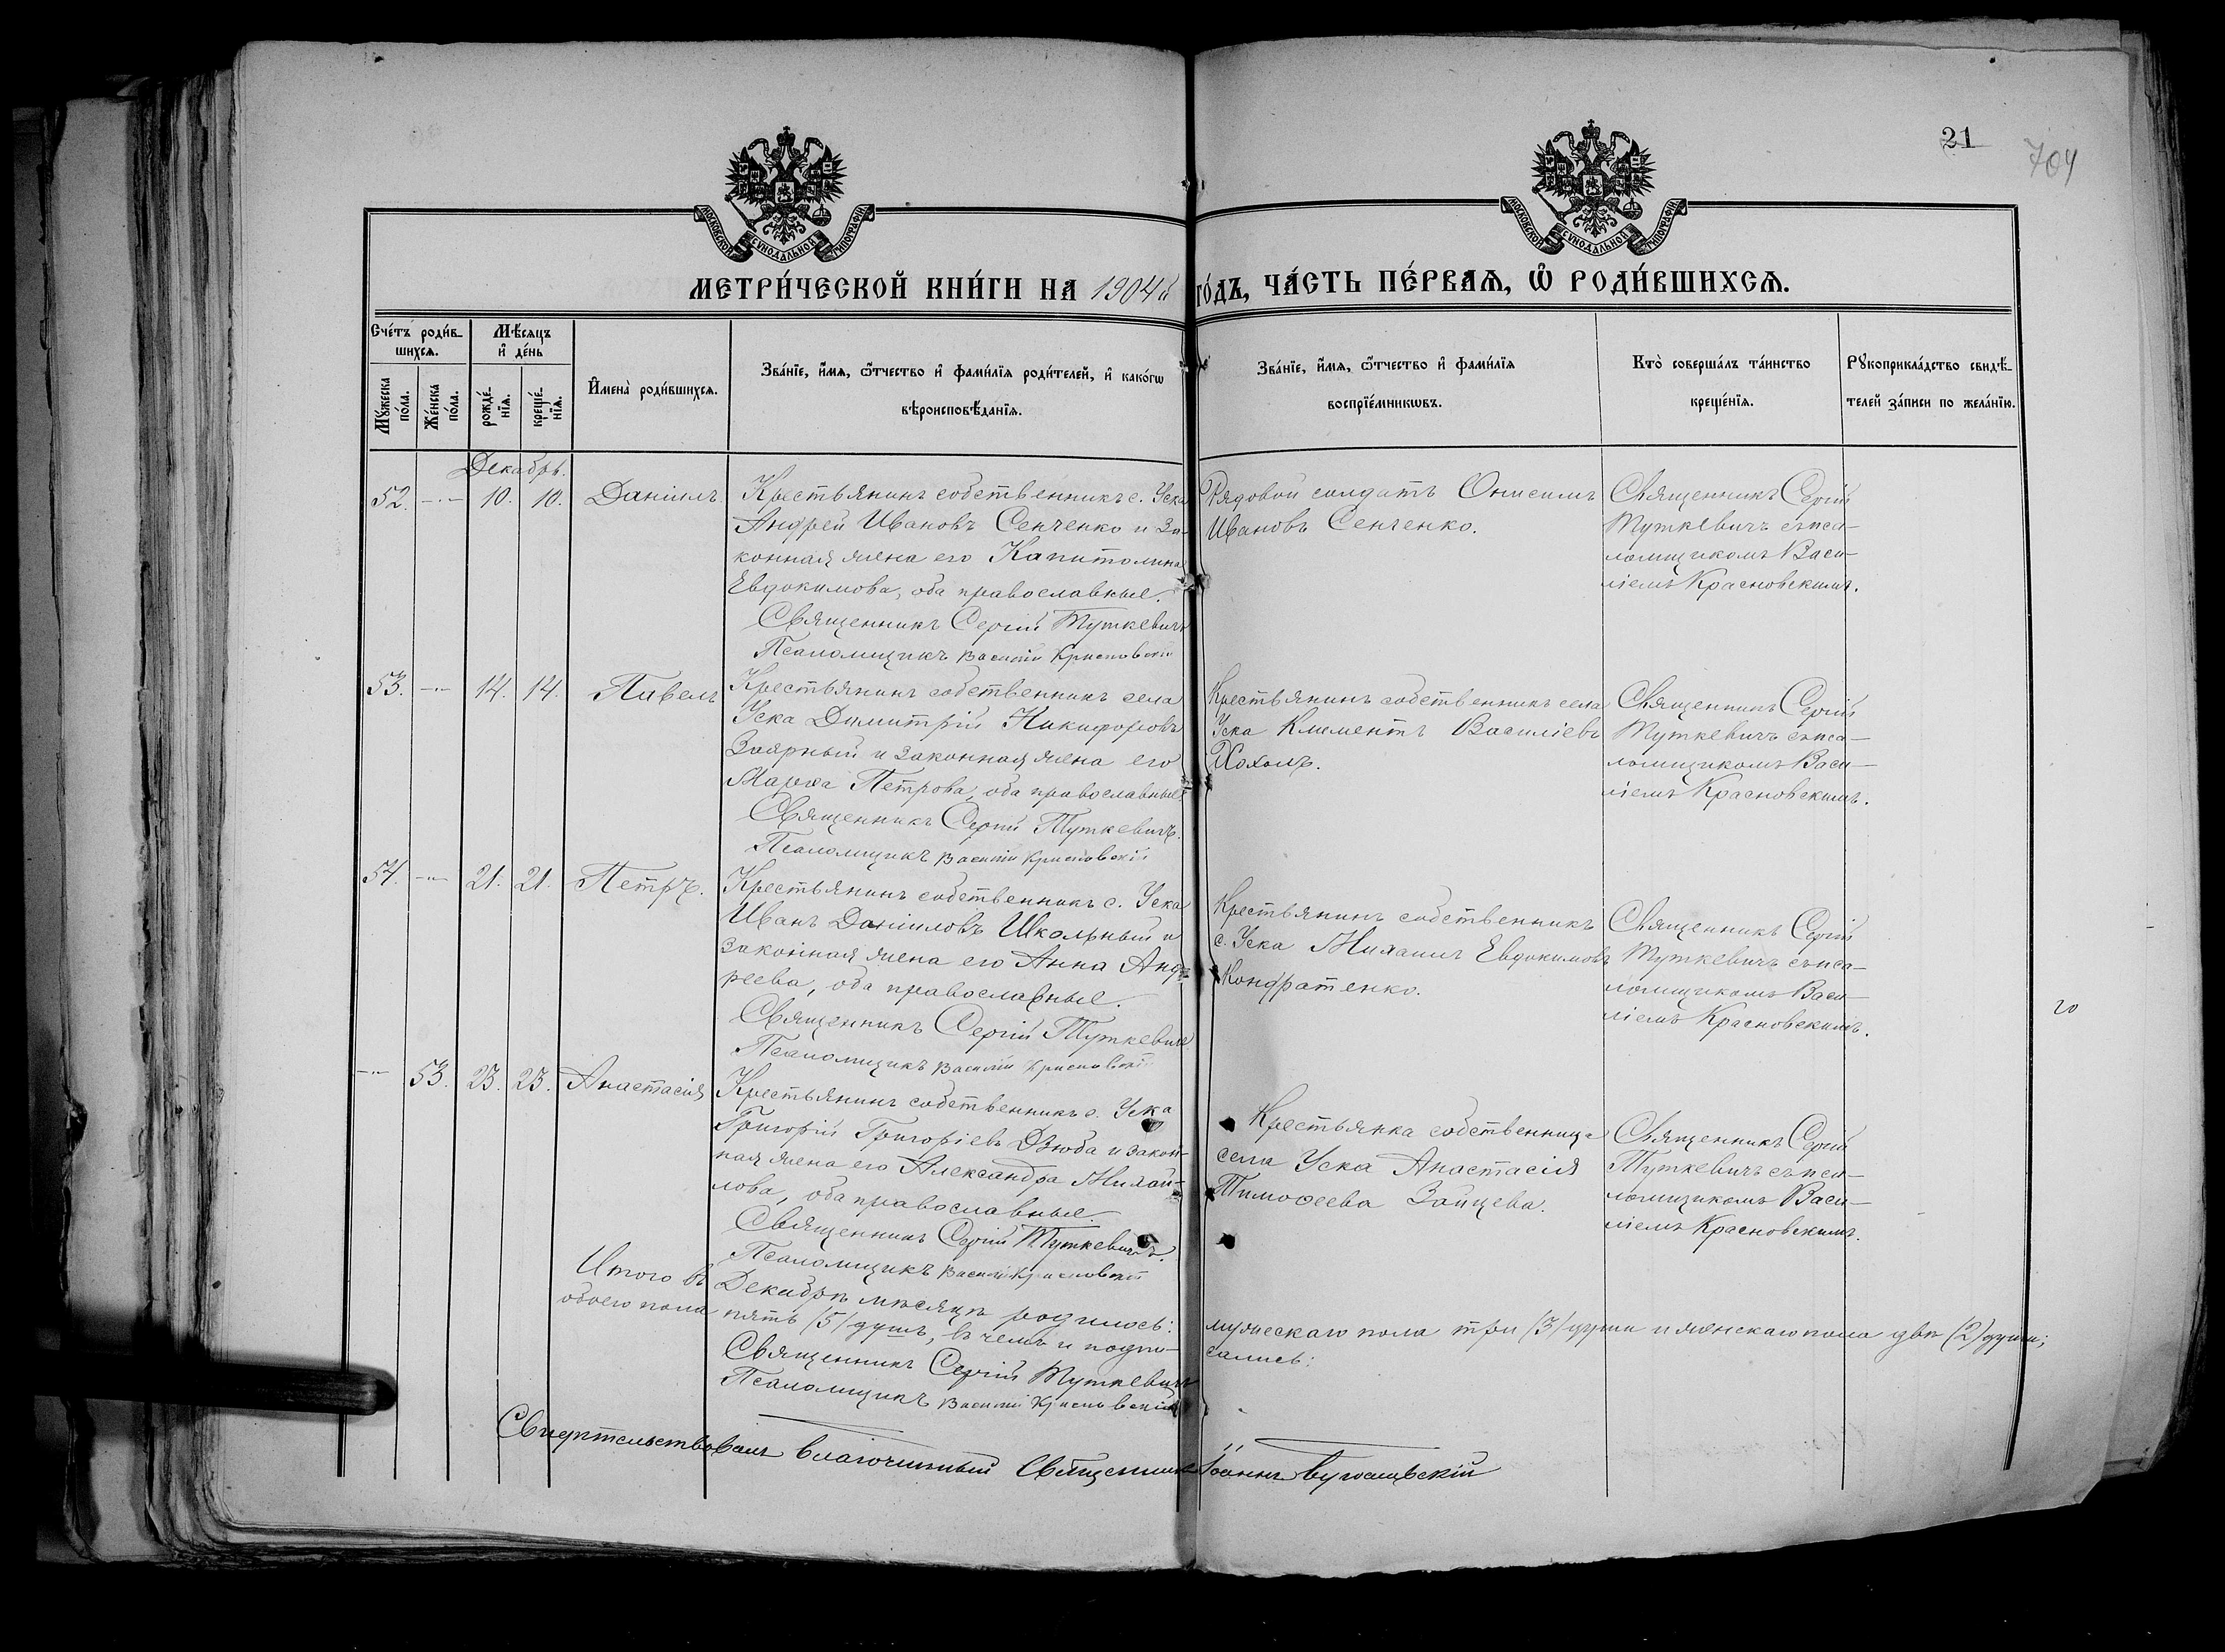 21
704
МОСКОВСКОЙ СѴНОДАЛЬНОЙ ТИПОГРАФІИ
МОСКОВСКОЙ СѴНОДАЛЬНОЙ ТИПОГРАФІИ
МЕТРИ́ЧЕСКОЙ КНИ́ГИ НА 1904й ГО́ДЪ, ЧА́СТЬ ПЕ́РВАѦ, Ѿ РОДИ́ВШИХСѦ.
Сче́тъ роди́в-
шихсѧ.
Мѣ́сѧцъ
и҆ де́нь
Мꙋ́жеска
по́ла.
Же́нска
по́ла.
рожде́-
нїѧ.
креще́-
нїѧ.
И҆мена̀ роди́вшихсѧ.
Зва́нїе, и҆́мѧ, ѻ҆́тчество и҆ фами́лїѧ роди́телей, и҆ како́гѡ
вѣроисповѣ́данїѧ.
Зва́нїе, и҆́мѧ, ѻ҆́тчество и҆ фами́лїѧ
воспрїе́мникѡвъ.
Кто̀ соверша́лъ та́инство
креще́нїѧ.
Рꙋкоприкла́дство свидѣ́-
телей за́писи по жела́нїю.
Декабрь.
52. -"- 10. 10. Даніилъ
Крестьянинъ собственникъ с. Уска
Андрей Ивановъ Сенченко и за-
конная жена его Капитолина
Евдокимова, оба православные.
Священникъ Сергій Туткевичъ
Псаломщикъ Василій Красновскій
Рядовой солдатъ Онисимъ
Ивановъ Сенченко.
Священникъ Сергій
Туткевичъ съ пса-
ломщикомъ Васи-
ліемъ Красновскимъ.
53. -"- 14. 14. Павелъ
Крестьянинъ собственникъ села
Уска Димитрій Никифоровъ
Заярный и законная жена его
Марѳа Петрова, оба православные.
Священникъ Сергій Туткевичъ.
Псаломщикъ Василій Красновскій
Крестьянинъ собственникъ села
Уска Климентъ Василіевъ
Хохолъ.
Священникъ Сергій
Туткевичъ съ пса-
ломщикомъ Васи-
ліемъ Красновскимъ.
54. -"- 21. 21. Петръ.
Крестьянинъ собственникъ с. Уска
Иванъ Даніиловъ Школрный и
законная жена его Анна Анд-
реева, оба православные.
Священникъ Сергій Туткевичъ
Псаломщикъ Василій Красновскій
Крестьянинъ собственникъ
с. Уска Михаилъ Евдокимовъ
Кондратенко.
Священникъ Сергій
Туткевичъ съ пса-
ломщикомъ Васи-
ліемъ Красновскимъ.
20
-"- 53. 23. 23. Анастасія
Крестьянинъ собственникъ с. Уска
Григорій Григоріевъ Дзюба и закон-
ная жена его Александра Михаи-
лова, оба православные.
Священникъ Сергій Туткевичъ.
Псаломщикъ Василій Красновскій
Крестьянка собственница
села Уска Анастасія
Тимоѳеева Зайцева.
Священникъ Сергій
Туткевичъ съ пса-
ломщикомъ Васи-
ліемъ Красновскимъ.
Итого въ Декабрѣ мѣсяцѣ родилось: мужескаго пола три /3/ души и женскаго пола двѣ (2) души;
обоего пола пять /5/ душъ, въ чемъ и подпи-сались:
Священникъ Сергій Туткевичъ
Псаломщикъ Василій Красновскій
Свидѣтельствовалъ благочинный Священникъ Іоаннъ